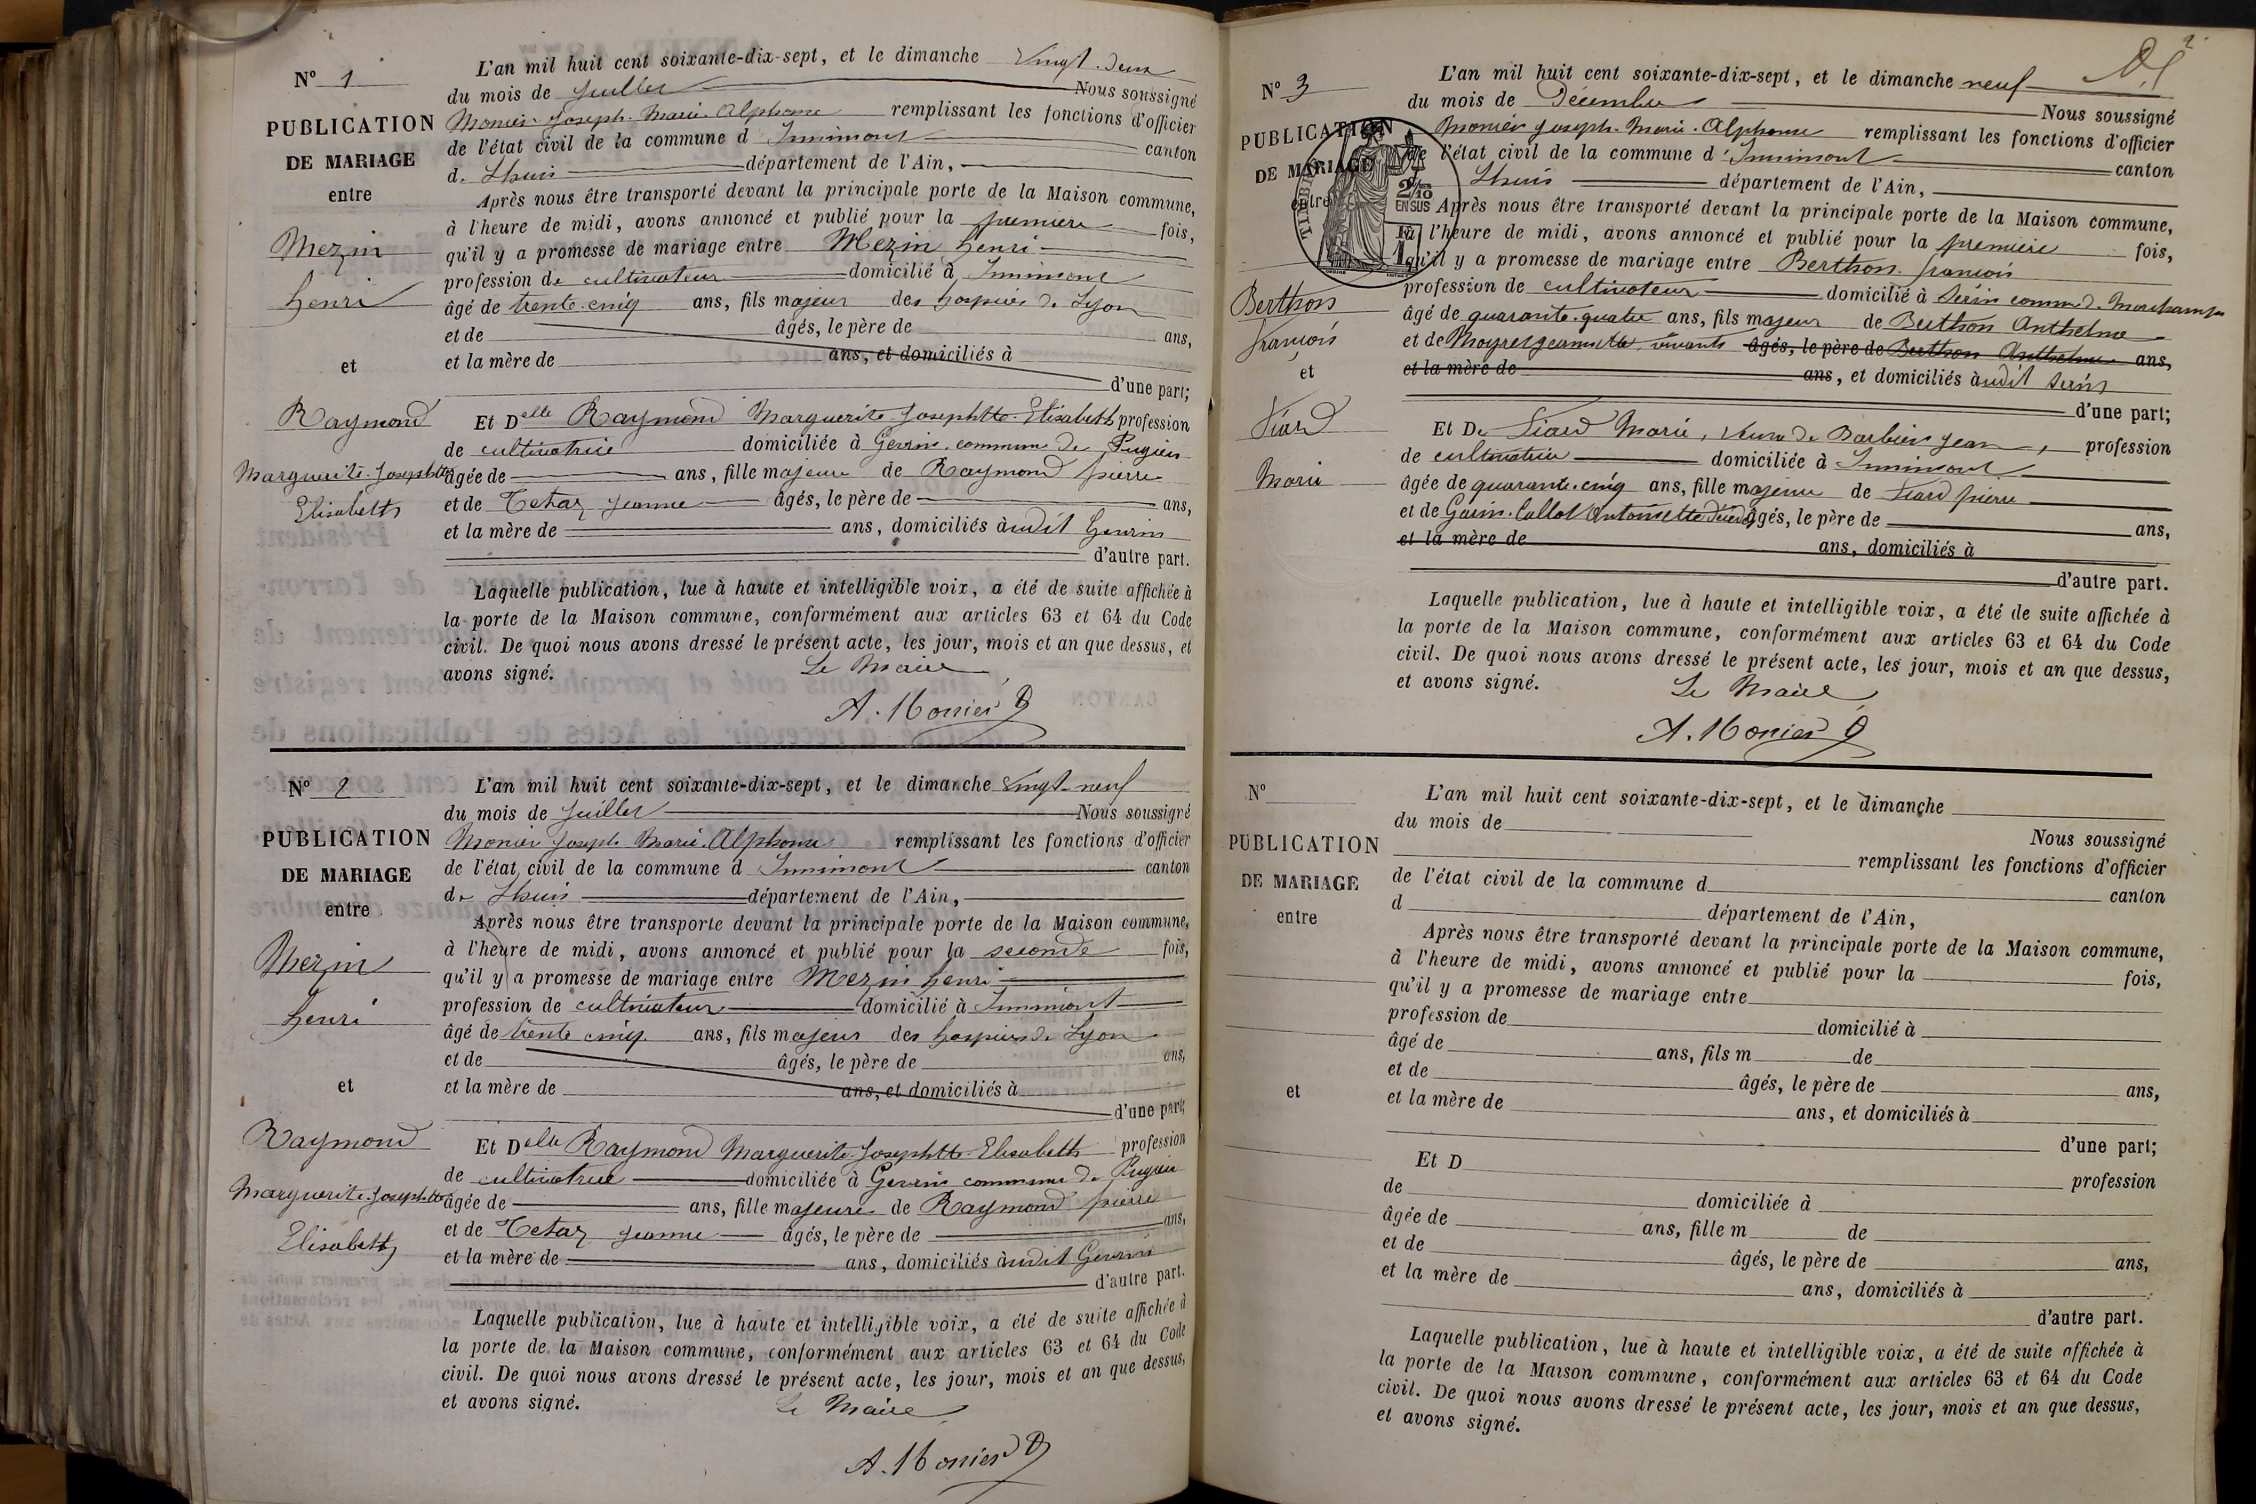 N° 1
PUBLICATION
DE MARIAGE
entre
Mezin
henri
et
Raymond
Marguerite Josephtte
Elisabeth
L'an mil huit cent soixante-dix-sept, et le dimanche Vingt-deux
du mois de Juillet Nous soussigné
Monier Joseph-Marie-Alphonse remplissant les fonctions d'officier
de l'état civil de la commune d'Innimont canton
de Lhuis département de l'Ain,
Après nous être transporté devant la principale porte de la Maison commune,
à l'heure de midi, avons annoncé et publié pour la première fois,
qu'il y a promesse de mariage entre Mezin henri
profession de cultivateur domicilié à Innimont
âgé de trente-cinq ans, fils majeur des hospices de Lyon
et de âgés, le père de ans,
et la mère de ans, et domiciliés à
d'une part;
Et Delle Raymond Marguerite-Josephtte-Elisabeth profession
de cultivatrice domiciliée à Gevrin commune de Pugieu
âgée de ans, fille majeure de Raymond pierre
et de Tetaz jeanne âgés, le père de ans,
et la mère de ans, domiciliés àudit Gevrin
d'autre part.
Laquelle publication, lue à haute et intelligible voix, a été de suite affichée à
la porte de la Maison commune, conformément aux articles 63 et 64 du Code
civil. De quoi nous avons dressé le présent acte, les jour, mois et an que dessus, et
avons signé.
Le Maire
A. Monier
N° 2
PUBLICATION
DE MARIAGE
entre
Mezin
henri
et
Raymond
Marguerite-Josephtte
Elisabeth
L'an mil huit cent soixante-dix-sept, et le dimanche Vingt-neuf
du mois de Juillet Nous soussigné
Monier Joseph-Marie-Alphonse remplissant les fonctions d'officier
de l'état civil de la commune d Innimont canton
de Lhuis département de l'Ain,
Après nous être transporté devant la principale porte de la Maison commune,
à l'heure de midi, avons annoncé et publié pour la seconde fois,
qu'il y a promesse de mariage entre Mezin henri
profession de cultivateur domicilié à Innimont
âgé de trente cinq ans, fils majeur des hospices de Lyon
et de âgés, le père de ans,
et la mère de ans, et domiciliés à
d'une part;
Et Delle Raymond Marguerite-Josephtte-Elisabeth profession
de cultivatrice domiciliée à Gevrin commune de Pugieu
âgée de ans, fille majeure de Raymond pierre
et de Tetaz jeanne âgés, le père de ans,
et la mère de ans, domiciliés àudit Gevrin
d'autre part.
Laquelle publication, lue à haute et intelligible voix, a été de suite affichée à
la porte de la Maison commune, conformément aux articles 63 et 64 du Code
civil. De quoi nous avons dressé le présent acte, les jour, mois et an que dessus,
et avons signé.
Le Maire
A. Monier
2
N° 3
PUBLICATION
DE MARIAGE
entre
Berthon
françois
et
Liard
Marie
TIMBRE
2/10
EN SUS
L'an mil huit cent soixante-dix-sept, et le dimanche neuf
du mois de Décembre Nous soussigné
Monier Joseph-Marie-Alphonse remplissant les fonctions d'officier
de l'état civil de la commune d'Innimont canton
Lhuis département de l'Ain,
Après nous être transporté devant la principale porte de la Maison commune,
à l'heure de midi, avons annoncé et publié pour la première fois,
qu'il y a promesse de mariage entre Berthon françois
profession de cultivateur domicilié à Serin comm. de Marchamp
âgé de quarante-quatre ans, fils majeur de Berthon Anthelme
et de Moyret jeannette, vivants âgés, le père de Berthon Anthelme ans,
et la mère de ans, et domiciliés àudit Serin
d'une part;
Et De Liard Marie, Veuve de Barbier jean, profession
de cultivatrice domiciliée à Innimont
âgée de quarante-cinq ans, fille majeure de Liard pierre
et de Gorin-Collot Antoinette âgés, le père de ans,
et la mère de ans, domiciliés à
d'autre part.
Laquelle publication, lue à haute et intelligible voix, a été de suite affichée à
la porte de la Maison commune, conformément aux articles 63 et 64 du Code
civil. De quoi nous avons dressé le présent acte, les jour, mois et an que dessus,
et avons signé.
Le Maire
A. Monier
N°
PUBLICATION
DE MARIAGE
entre
et
L'an mil huit cent soixante-dix-sept, et le dimanche
du mois de
Nous soussigné
remplissant les fonctions d'officier
de l'état civil de la commune d
canton
d département de l'Ain,
Après nous être transporté devant la principale porte de la Maison commune,
à l'heure de midi, avons annoncé et publié pour la fois,
qu'il y a promesse de mariage entre
profession de domicilié à
âgé de ans, fils m de
et de âgés, le père de ans,
et la mère de ans, et domiciliés à
d'une part;
Et D
profession
de domiciliée à
âgée de ans, fille m de
et de âgés, le père de ans,
et la mère de ans, domiciliés à
d'autre part.
Laquelle publication, lue à haute et intelligible voix, a été de suite affichée à
la porte de la Maison commune, conformément aux articles 63 et 64 du Code
civil. De quoi nous avons dressé le présent acte, les jour, mois et an que dessus,
et avons signé.